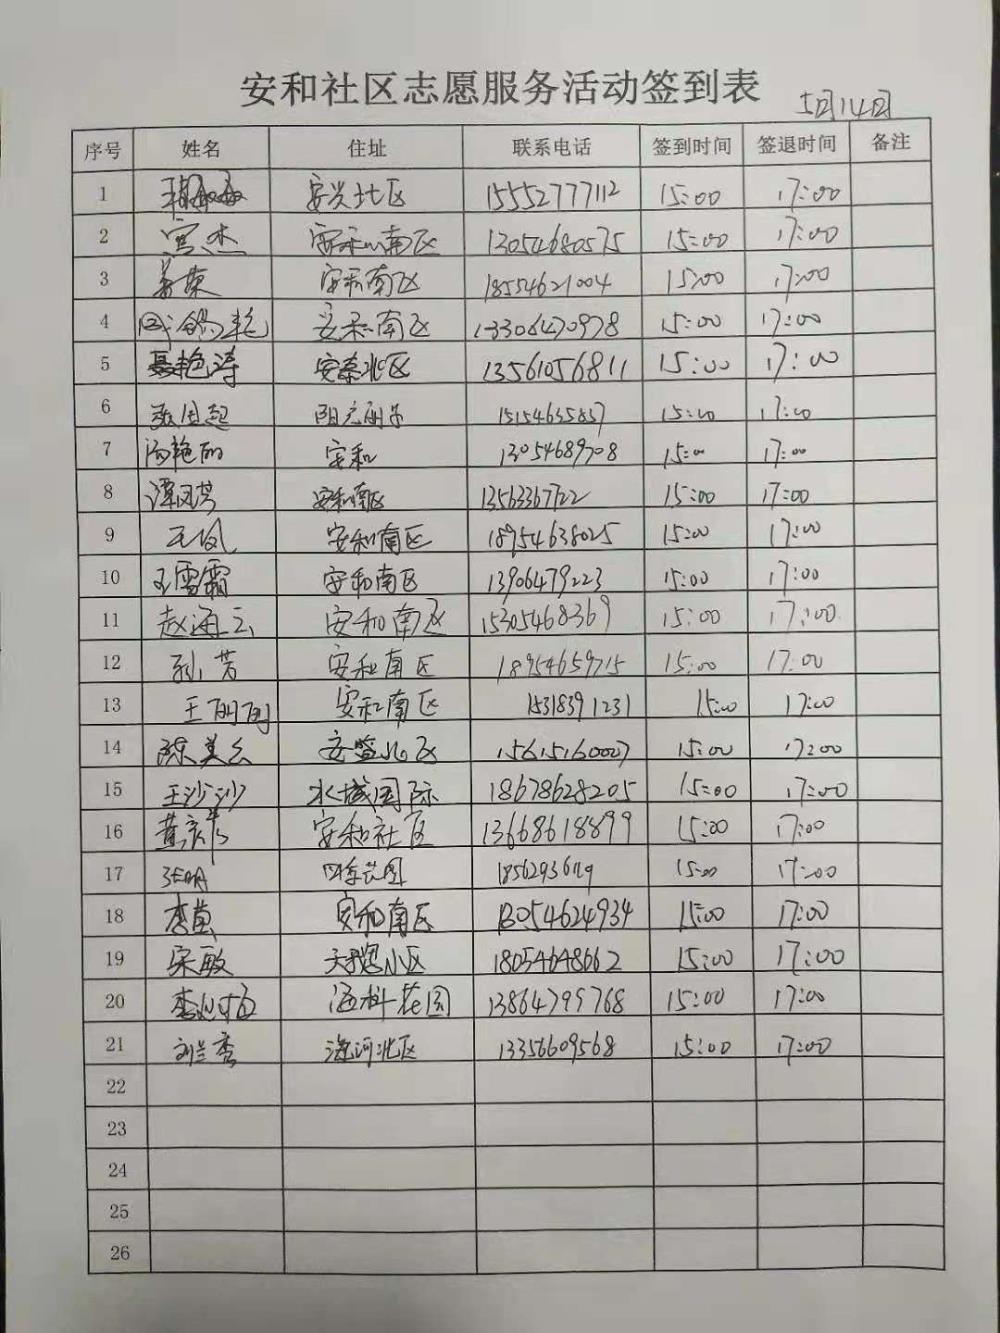 安和社区志愿服务活动签到表 5月14日
序号 姓名 住址 联系电话 签到时间 签退时间 备注
1 安兴北区 15552777112 15:00 17:00
2 宫杰 安和南区 13054680575 15:00 17:00
3 安和南区 18554621004 15:00 17:00
4 安和南区 13306470978 15:00 17:00
5 聂艳涛 安泰北区 13561056811 15:00 17:00
6 15154635857 15:00 17:00
7 汤艳丽 安和 13054689708 15:00 17:00
8 谭凤芳 安和南区 13563367722 15:00 17:00
9 王凤 安和南区 18954638025 15:00 17:00
10 王雪霜 安和南区 13906479223 15:00 17:00
11 赵海云 安和南区 15305468369 15:00 17:00
12 孙芳 安和南区 18954659715 15:00 17:00
13 王丽丽 安和南区 15318391231 15:00 17:00
14 陈美云 安盛北区 15615160027 15:00 17:00
15 王沙沙 水城国际 18678628205 15:00 17:00
16 安和社区 13668618899 15:00 17:00
17 张明 四季花园 15:00 17:00
18 李苗 安和南区 13054624934 15:00 17:00
19 宋敏 小区 18054648662 15:00 17:00
20 海科花园 13864799768 15:00 17:00
21 刘兰香 海河北区 13356609568 15:00 17:00
22
23
24
25
26